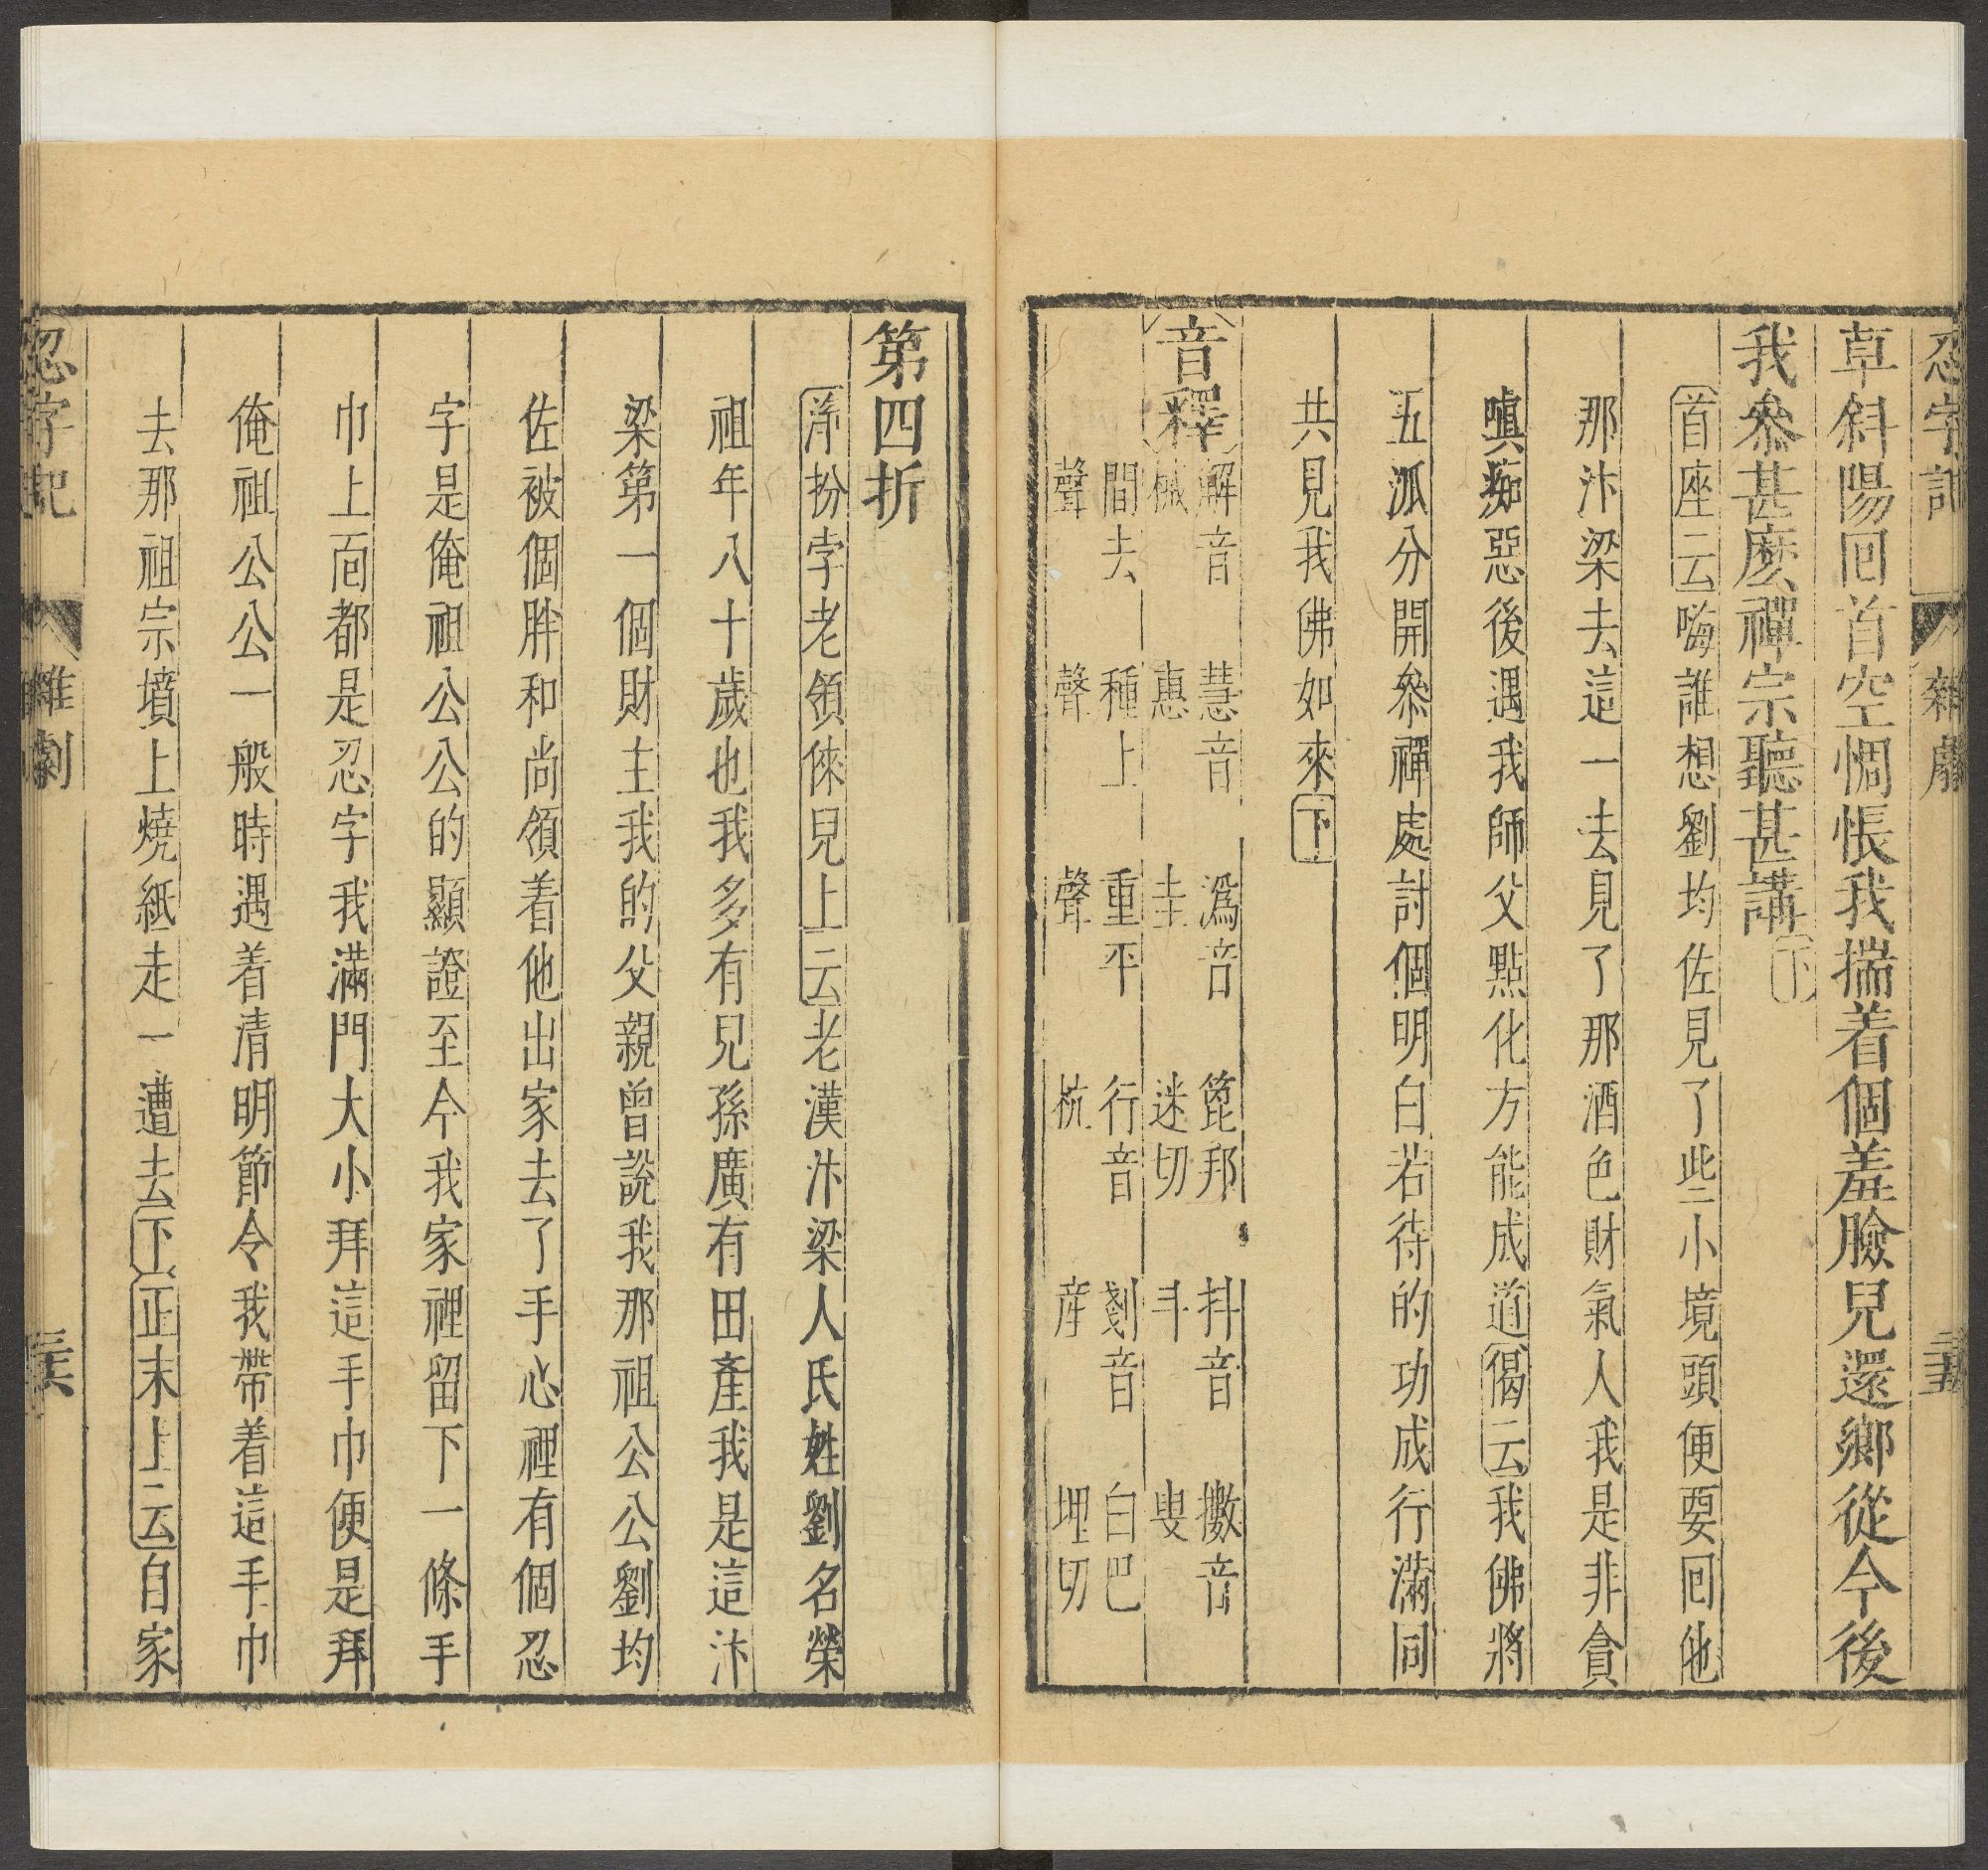 忍字記 雜劇 三十五
草斜陽回首空惆悵我揣着個羞臉兒還鄉從今後
我叅甚麽禪宗聽甚講下
首座云嗨誰想劉均佐見了些小境頭便要回他
那汴梁去這一去見了那酒色財氣人我是非貪
嗔痴惡後遇我師父點化方能成道偈云我佛將
五派分開叅禪處討個明白若待的功成行滿同
共見我佛如來下
音釋
解音械 慧音惠 潙音圭 篦邦迷切 抖音斗 擻音叟
間去聲 種上聲 重平聲 行音杭 剗音産 白巴埋切
第四折
淨扮孛老領倈兒上云老漢汴梁人氏姓劉名榮
祖年八十歲也我多有兒孫廣有田產我是這汴
梁第一個財主我的父親曾說我那祖公公劉均
佐被個胖和尚領着他出家去了手心裡有個忍
字是俺祖公公的顯證至今我家裡留下一條手
巾上面都是忍字我滿門大小拜這手巾便是拜
俺祖公公一般時遇着清明節令我帶着這手巾
去那祖宗墳上燒紙走一遭去下正末上云自家
忍字記 雜劇 三十六